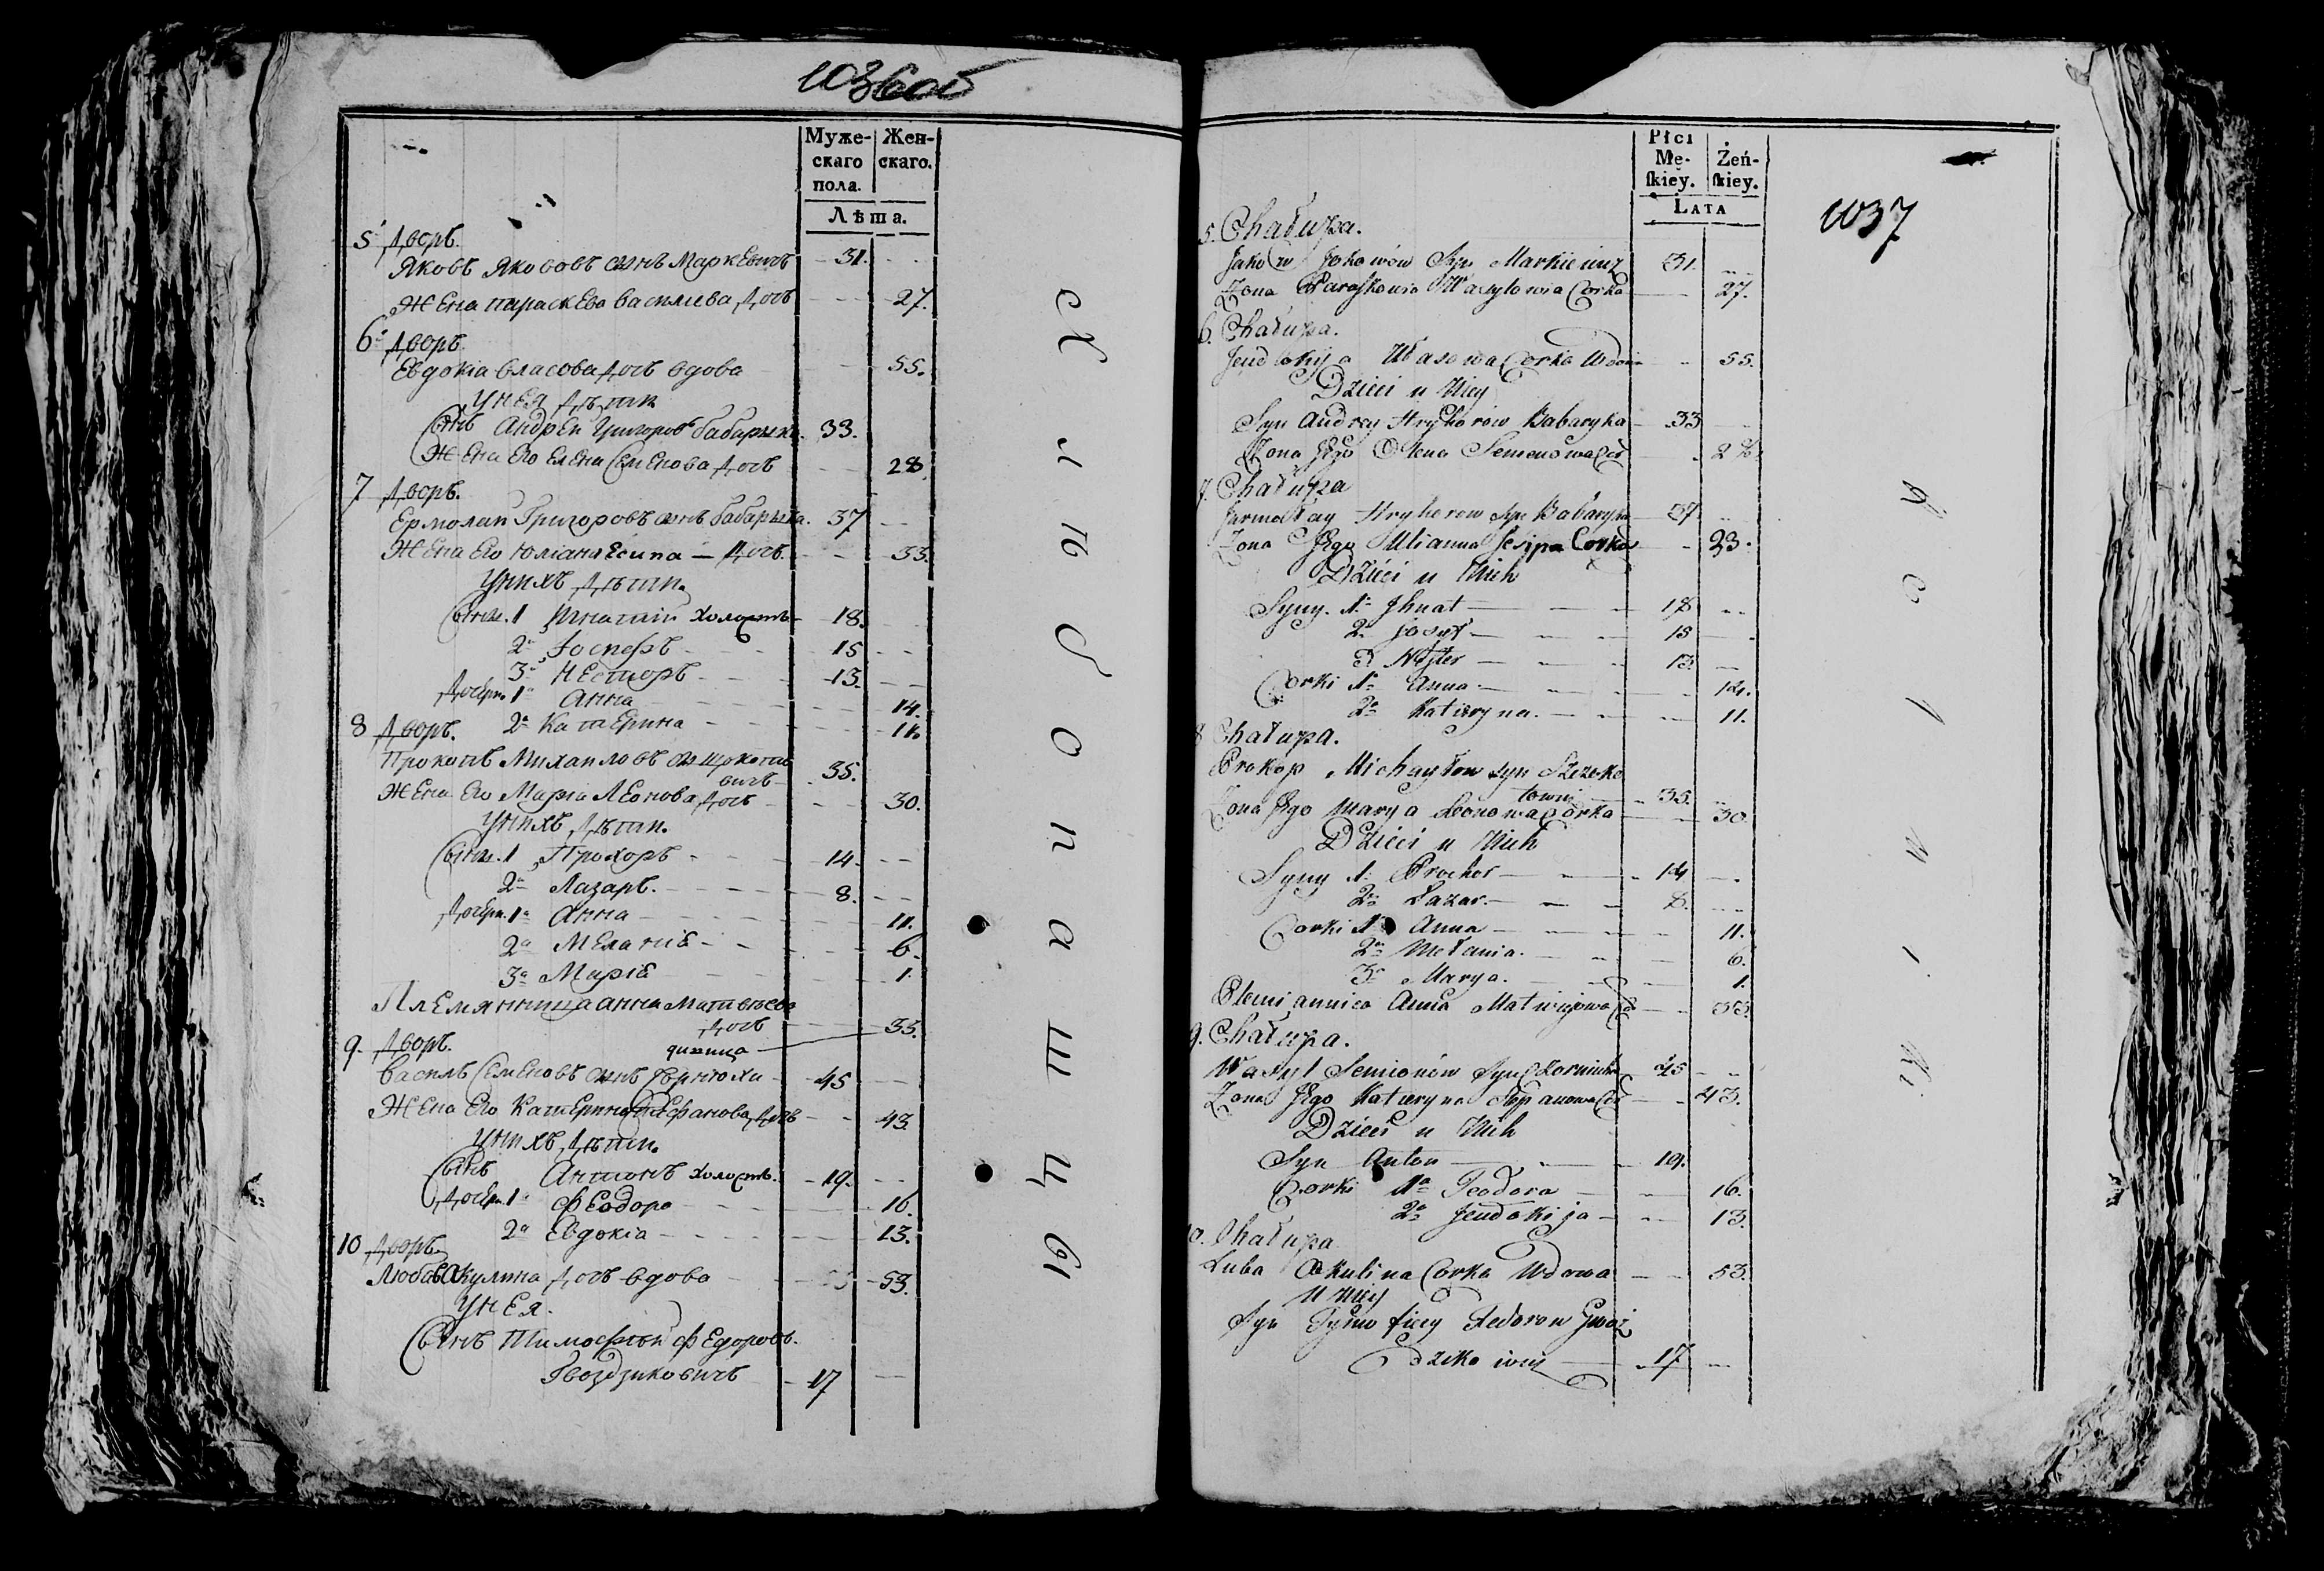 1036об
Муже-
скаго
пола.
Жен-
скаго.
Лѣта.
5 Дворъ.
Яковъ Якововъ сынъ Маркевичъ 31.
Жена параскева василева дочъ 27.
6 Дворъ.
Евдокіа власова дочъ вдова 55.
У нея дѣти
Сынъ Андрей Григоровъ бабарыка. 33.
Жена его Елена Семенова дочъ 28.
7 Дворъ.
Ермолай Григоровъ сынъ бабарыка. 37
Жена его Юліана Есипа — дочъ. 33.
У нихъ дѣти.
Сыны. 1 Игнатій холостъ 18.
2й Іосифъ 15
3й Несторъ 13.
Дочери. 1а Анна 14.
2а Катерина 11.
8 Дворъ.
Прокопъ Михаиловъ сы щокото
вичъ 35.
Жена его Маріа Леонова дочъ 30.
У нихъ дѣти.
Сыны. 1 Прохоръ 14
2й Лазаръ. 8.
Дочери. 1а Анна 11.
2а Меланіа 6.
3а Маріа 1.
Племянница анна Матвѣева
дочъ 33.
дивица
9. Дворъ.
Василъ Семеновъ сынъ Чорнюха 45
Жена его Катерина Стефанова дочъ 43.
У нихъ дѣти.
Сынъ Антонъ холостъ. 19.
Дочери 1а Феодора 16.
2а Евдокіа 13.
10 Дворъ
Любава Акулина дочъ вдова 53.
У нея.
Сынъ Тимофѣй Федоровъ.
Гвоздзиковичъ 17
Х л ѣ б о п а ш ц ы
Płci
Mę-
skiey.
Żeń-
skiey.
LATA
1037
5. Chałupa.
Jakow Jakowów Syn Markiewicz 31.
Zona Paraskowia Wasylowia Corka 27.
6. Chałupa.
Jewdokija Własowa Corka Wdowa 55.
Dzieci u Niey
Syn Andrey Hryhorów Babaryka 33
Zona Jego Olena Semenowa 28.
7. Chałupa
Jarmołay Hryhorow Syn Babaryka 37
Zona Jego Ulianna Jesipa Corka 33.
Dzieci u Nich
Syny. 1. Ihnat 18
2. Josyf 15
3 Nester 13.
Corki 1a Anna 14.
2a Kateryna. 11.
8 Chałupa.
Prokop Michayłow syn Szczoko
towicz 35.
Zona Jego Marya Leonowa Corka 30.
Dzieci u Nich
Syny 1. Prochor 14
2. Łazar. 8.
Corki 1a Anna 11.
2a Mełania. 6.
3a Marya. 1.
Plemiannica Anna Matwijowa 33.
9. Chałupa.
Wasyl Semionów Syn Czorniucha 45
Zona Jego Kateryna Stepanowa 43.
Dzieci u Nich
Syn Anton 19.
Corki 1a Teodora 16.
2a Jewdokija 13.
10. Chałupa
Luba Akulina Corka Wdowa 53.
u Niey
Syn Tymofiey Fedorow Gwoz
dzikowicz 17
R o l n i k i